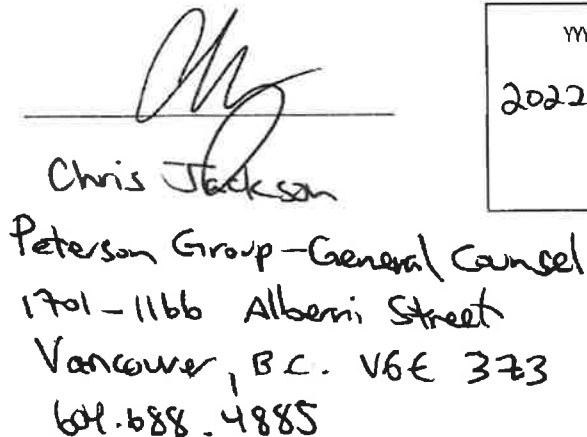 2022
Chris Jackson
Peterson Group - General Counsel
1701 - 1166 Alberni Street
Vancouver, B.C. V6E 3Z3
604.688.4885